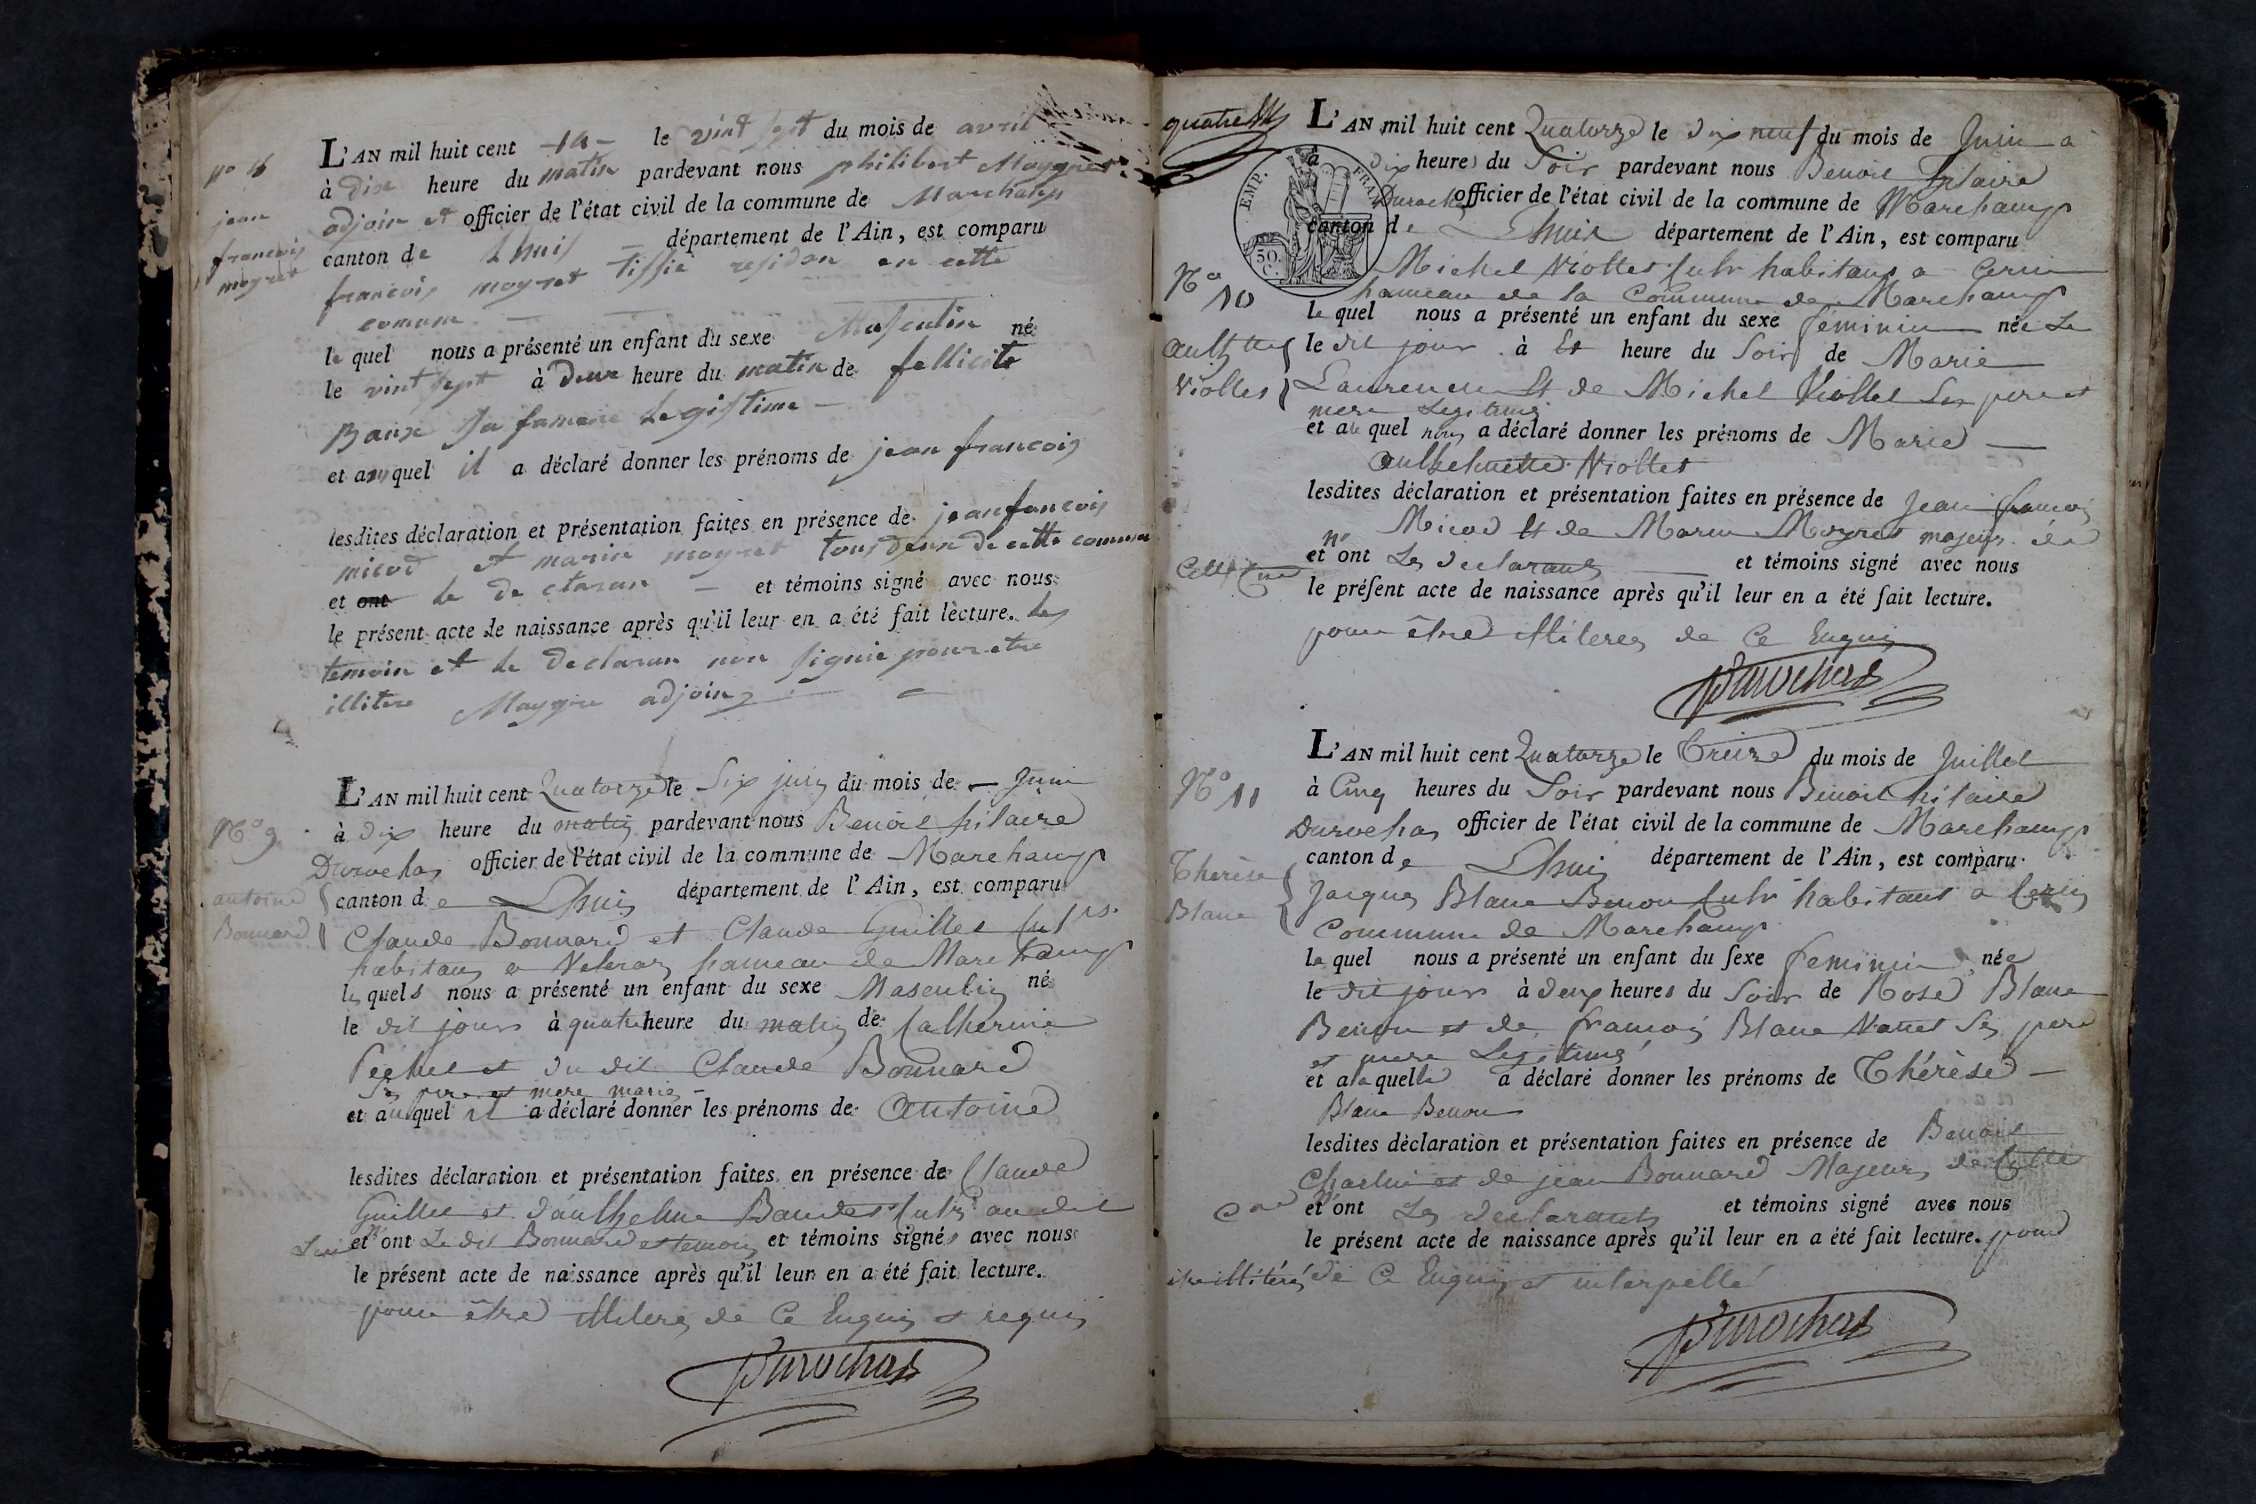 no 8
jean
francois
moyret
L'AN mil huit cent -14- le vint sept du mois de avril
à dix heure du matin pardevant nous philibert Maygret
adjoin et officier de l'état civil de la commune de Marchamp
canton de Lhuis département de l'Ain, est comparu
francois moyret tissie residan en cette
comune
le quel nous a présenté un enfant du sexe Masculin né
le vint sept à deux heure du matin de fellicité
Baux sa famme legistime
et au quel il a déclaré donner les prénoms de jean francois
lesdites déclaration et présentation faites en présence de jean francois
micod et marin moyret tous deux de cette commun
et ont le declaran et témoins signé avec nous
le présent acte de naissance après qu'il leur en a été fait lecture. les
temoin et le declaran non signie pour etre
illitere Maygre adjoin
No 9
antoine
Bonnard
L'AN mil huit cent Quatorze le Six juin du mois de Juin
à dix heure du matin pardevant nous Benoit hilaire
Durochas officier de l'état civil de la commune de Marchamp
canton de Lhuis département de l'Ain, est comparu
Claude Bonnard et Claude Guillet cultrs
habitans a hameau de Marchamp
les quels nous a présenté un enfant du sexe Masculin né
le dit jour à quatre heure du matin de Catherine
Pechet et du dit Claude Bonnard
Ses pere et mere mariés
et au quel il a déclaré donner les prénoms de Antoine
lesdites déclaration et présentation faites en présence de Claude
Guillet et d'anthelme Baudet cultrs au dit
et n'ont Le dit Bonnard et temoins et témoins signés avec nous
le présent acte de naissance après qu'il leur en a été fait lecture.
pour être illiteres de ce Enquis et requis
Durochas
quatre
EMP. FRAN
50.
C.
No 10
anthtte
Viollet
L'AN mil huit cent Quatorze le dix neuf du mois de Juin a
à dix heures du Soir pardevant nous Benoit hilaire
Durochas officier de l'état civil de la commune de Marchamp
canton de Lhuis département de l'Ain, est comparu
Michel Viollet cultr habitant a Cerin
hameau de la Commune de Marchamp
le quel nous a présenté un enfant du sexe féminin née Le
le dit jour à heure du Soir de Marie
Laurencin Et de Michel Viollet Ses pere et
mere Legitimes
et a le quel nous a déclaré donner les prénoms de Marie
anthelmette Viollet
lesdites déclaration et présentation faites en présence de Jean francois
Micod Et de Marin Moyret majeurs de
Cette Cne et n'ont Les declarants et témoins signé avec nous
le présent acte de naissance après qu'il leur en a été fait lecture.
pour être illiteres de Ce Enquis
Durochas
No 11
Thérèse
Blanc
L'AN mil huit cent Quatorze le Treize du mois de Juillet
à Cinq heures du Soir pardevant nous Benoit hilaire
Durochas officier de l'état civil de la commune de Marchamp
canton de Lhuis département de l'Ain, est comparu
Jacques Blanc Benon cultr habitant a Cerin
Commune de Marchamp
le quel nous a présenté un enfant du sexe feminin née
le dit jour à deux heures du Soir de Rose Blanc
Benon et de francois Blanc Nattet Ses pere
et mere Legitimes
et a la quelle a déclaré donner les prénoms de Thérèse
Blanc Benon
lesdites déclaration et présentation faites en présence de Benoit
Charlin et de jean Bonnard Majeurs de Cette
Cne et n'ont Les declarants et témoins signé avec nous
le présent acte de naissance après qu'il leur en a été fait lecture. pour
être illitérés de Ce Enquis et interpellé
Durochas